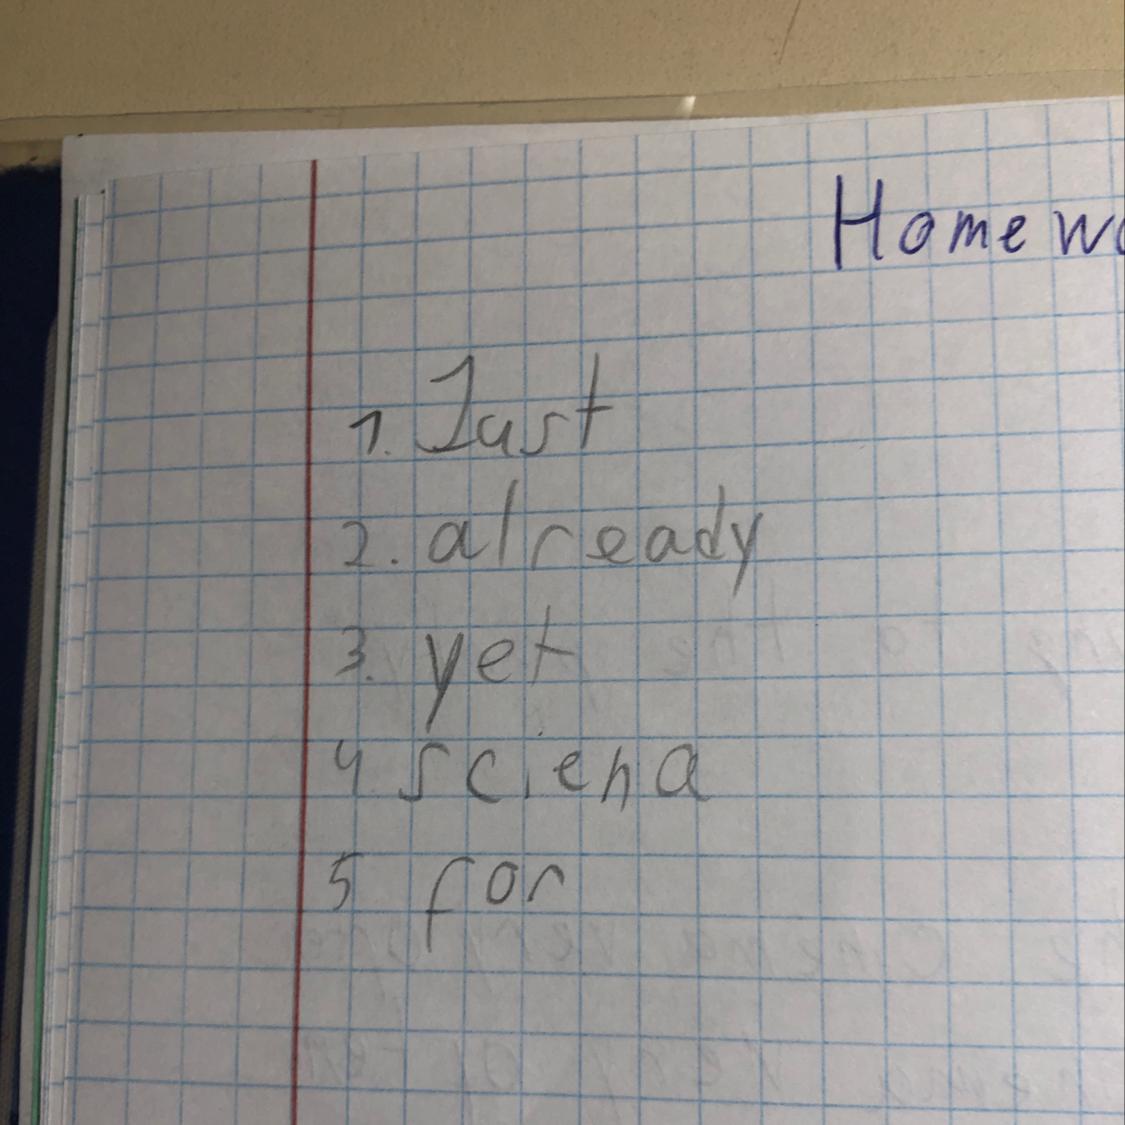 Homewo
1. Just
2. already
3. yet
4 sciena
5 for